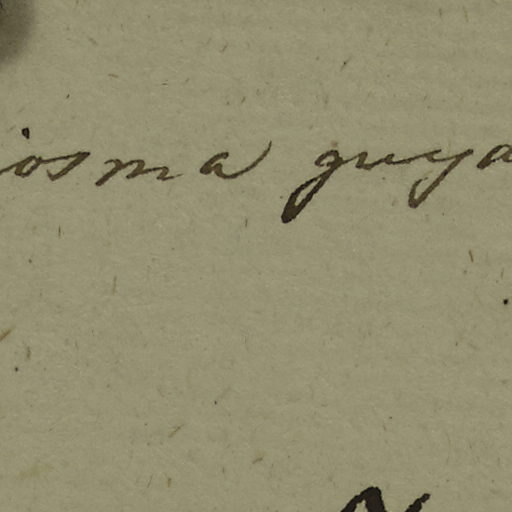 iosma guya